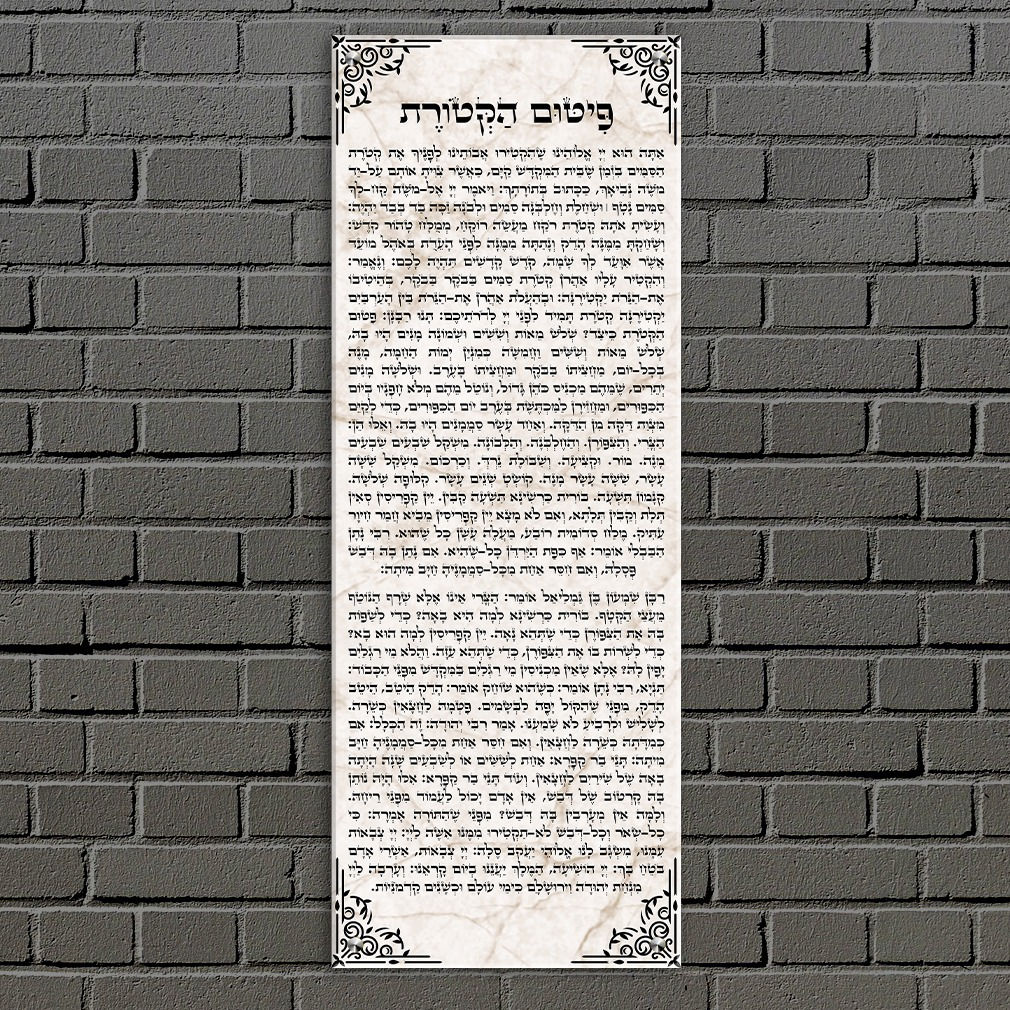 פִּיטוּם הַקְּטֹורֶת
אַתָּה הוּא יְיָ אֱלֹוהֵינוּ שֶׁהִקְטִירוּ אֲבוֹתֵינוּ לְפָנֶיךָ אֶת קְטֹרֶת
הַסַּמִּים בִּזְמַן שֶׁבֵּית הַמִּקְדָּשׁ קַיָּם, כַּאֲשֶׁר צִוִּיתָ אוֹתָם עַל-יַד
מֹשֶׁה נְבִיאֶךָ, כַּכָּתוּב בְּתוֹרָתֶךָ: וַיֹּאמֶר יְיָ אֶל-מֹשֶׁה קַח-לְךָ
סַמִּים נָטָף וּשְׁחֵלֶת וְחֶלְבְּנָה סַמִּים וּלְבֹנָה זַכָּה בַּד בְּבַד יִהְיֶה:
וְעָשִׂיתָ אֹתָהּ קְטֹרֶת רֹקַח מַעֲשֵׂה רוֹקֵחַ, מְמֻלָּח טָהוֹר קֹדֶשׁ:
וְשָׁחַקְתָּ מִמֶּנָּה הָדֵק וְנָתַתָּה מִמֶּנָּה לִפְנֵי הָעֵדֻת בְּאֹהֶל מוֹעֵד
אֲשֶׁר אִוָּעֵד לְךָ שָׁמָּה, קֹדֶשׁ קָדָשִׁים תִּהְיֶה לָכֶם: וְנֶאֱמַר:
וְהִקְטִיר עָלָיו אַהֲרֹן קְטֹרֶת סַמִּים בַּבֹּקֶר בַּבֹּקֶר בְּהֵיטִיבוֹ
אֶת-הַנֵּרֹת יַקְטִירֶנָּה: וּבְהַעֲלֹת אַהֲרֹן אֶת-הַנֵּרֹת בֵּין הָעַרְבַּיִם
יַקְטִירֶנָּה קְטֹרֶת תָּמִיד לִפְנֵי יְיָ לְדֹרֹתֵיכֶם: תָּנוּ רַבָּנָן: פִּטּוּם
הַקְּטֹרֶת כֵּיצַד? שְׁלֹשׁ מֵאוֹת וְשִׁשִּׁים וּשְׁמוֹנָה מָנִים הָיוּ בָהּ,
שְׁלֹשׁ מֵאוֹת וְשִׁשִּׁים וַחֲמִשָּׁה כְּמִנְיַן יְמוֹת הַחַמָּה, מָנֶה
בְּכָל-יוֹם, מַחֲצִיתוֹ בַּבֹּקֶר וּמַחֲצִיתוֹ בָּעֶרֶב. וּשְׁלֹשָׁה מָנִים
יְתֵרִים, שֶׁמֵּהֶם מַכְנִיס כֹּהֵן גָּדוֹל, וְנוֹטֵל מֵהֶם מְלֹא חָפְנָיו בְּיוֹם
הַכִּפּוּרִים, וּמַחֲזִירָן לְמַכְתֶּשֶׁת בְּעֶרֶב יוֹם הַכִּפּוּרִים, כְּדֵי לְקַיֵּם
מִצְוַת דַּקָּה מִן הַדַּקָּה. וְאַחַד עָשָׂר סַמְמָנִים הָיוּ בָהּ. וְאֵלּוּ הֵן:
הַצֳּרִי. וְהַצִּפֹּרֶן. וְהַחֶלְבְּנָה. וְהַלְּבוֹנָה. מִשְׁקַל שִׁבְעִים שִׁבְעִים
מָנֶה. מוֹר. וּקְצִיעָה. וְשִׁבּוֹלֶת נֵרְדְּ. וְכַרְכּוֹם. מִשְׁקַל שִׁשָּׁה
עָשָׂר, שִׁשָּׁה עָשָׂר מָנֶה. קוֹשְׁטְ שְׁנֵים עָשָׂר. קִלּוּפָה שְׁלֹשָׁה.
קִנָּמוֹן תִּשְׁעָה. בּוֹרִית כַּרְשִׁינָא תִּשְׁעָה קַבִּין. יֵין קַפְרִיסִין סְאִין
תְּלָת וְקַבִּין תְּלָתָא, וְאִם לֹא מָצָא יֵין קַפְרִיסִין מֵבִיא חֲמַר חִיוָר
עַתִּיק. מֶלַח סְדוֹמִית רוֹבַע, מַעֲלֶה עָשָׁן כָּל שֶׁהוּא. רִבִּי נָתָן
הַבַּבְלִי אוֹמֵר: אַף כִּפַּת הַיַּרְדֵּן כָּל-שֶׁהִיא. אִם נָתַן בָּהּ דְּבַשׁ
פְּסָלָהּ, וְאִם חִסַּר אַחַת מִכָּל-סַמְמָנֶיהָ חַיָּב מִיתָה:
רַבָּן שִׁמְעוֹן בֶּן גַּמְלִיאֵל אוֹמֵר: הַצֳּרִי אֵינוֹ אֶלָּא שְׂרָף הַנּוֹטֵף
מֵעֲצֵי הַקְּטָף. בּוֹרִית כַּרְשִׁינָא לְמָה הִיא בָאָה? כְּדֵי לְשַׁפּוֹת
בָּהּ אֶת הַצִּפֹּרֶן כְּדֵי שֶׁתְּהֵא נָאָה. יֵין קַפְרִיסִין לְמָה הוּא בָא?
כְּדֵי לִשְׁרוֹת בּוֹ אֶת הַצִּפֹּרֶן, כְּדֵי שֶׁתְּהֵא עַזָּה. וַהֲלֹא מֵי רַגְלַיִם
יָפִין לָהּ? אֶלָּא שֶׁאֵין מַכְנִיסִין מֵי רַגְלַיִם בַּמִּקְדָּשׁ מִפְּנֵי הַכָּבוֹד:
תַּנְיָא, רִבִּי נָתָן אוֹמֵר: כְּשֶׁהוּא שׁוֹחֵק אוֹמֵר: הָדֵק הֵיטֵב, הֵיטֵב
הָדֵק, מִפְּנֵי שֶׁהַקּוֹל יָפֶה לַבְּשָׂמִים. פִּטְּמָהּ לַחֲצָאִין כְּשֵׁרָה.
לִשְׁלִישׁ וּלְרָבִיעַ לֹא שָׁמַעְנוּ. אָמַר רִבִּי יְהוּדָה: זֶה הַכְּלָל: אִם
כְּמִדָּתָהּ כְּשֵׁרָה לַחֲצָאִין. וְאִם חִסַּר אַחַת מִכָּל-סַמְמָנֶיהָ חַיָּב
מִיתָה: תָּנֵי בַר קַפָּרָא: אַחַת לְשִׁשִּׁים אוֹ לְשִׁבְעִים שָׁנָה הָיְתָה
בָאָה שֶׁל שִׁירַיִם לַחֲצָאִין. וְעוֹד תָּנֵי בַר קַפָּרָא: אִלּוּ הָיָה נוֹתֵן
בָּהּ קָרְטוֹב שֶׁל דְּבַשׁ, אֵין אָדָם יָכוֹל לַעֲמוֹד מִפְּנֵי רֵיחָהּ.
וְלָמָּה אֵין מְעָרְבִין בָּהּ דְּבַשׁ? מִפְּנֵי שֶׁהַתּוֹרָה אָמְרָה: כִּי
כָל-שְׂאֹר וְכָל-דְּבַשׁ לֹא-תַקְטִירוּ מִמֶּנּוּ אִשֶּׁה לַיְיָ: יְיָ צְבָאוֹת
עִמָּנוּ, מִשְׂגָּב לָנוּ אֱלֹוהֵי יַעֲקֹב סֶלָה: יְיָ צְבָאוֹת, אַשְׁרֵי אָדָם
בֹּטֵחַ בָּךְ: יְיָ הוֹשִׁיעָה, הַמֶּלֶךְ יַעֲנֵנוּ בְיוֹם קָרְאֵנוּ: וְעָרְבָה לַיְיָ
מִנְחַת יְהוּדָה וִירוּשָׁלָםִ כִּימֵי עוֹלָם וּכְשָׁנִים קַדְמֹנִיּוֹת.